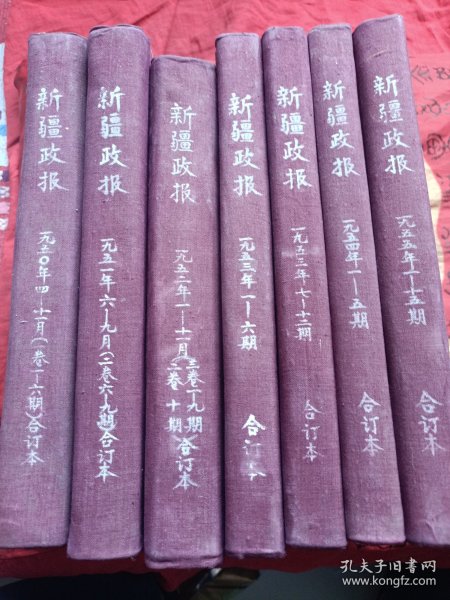 新疆政报
一九五〇年四—十一月(一卷1—6期)合订本
新疆政报
一九五一年六—九月(二卷六—九期)合订本
新疆政报
一九五二年一—十一月(三卷一—九期 二卷十期)合订本
新疆政报
一九五三年一—六期
合订本
新疆政报
一九五三年七—十二期
合订本
新疆政报
一九五四年一—五期
合订本
新疆政报
一九五五年一—十五期
合订本
孔夫子旧书网
www.kongfz.com